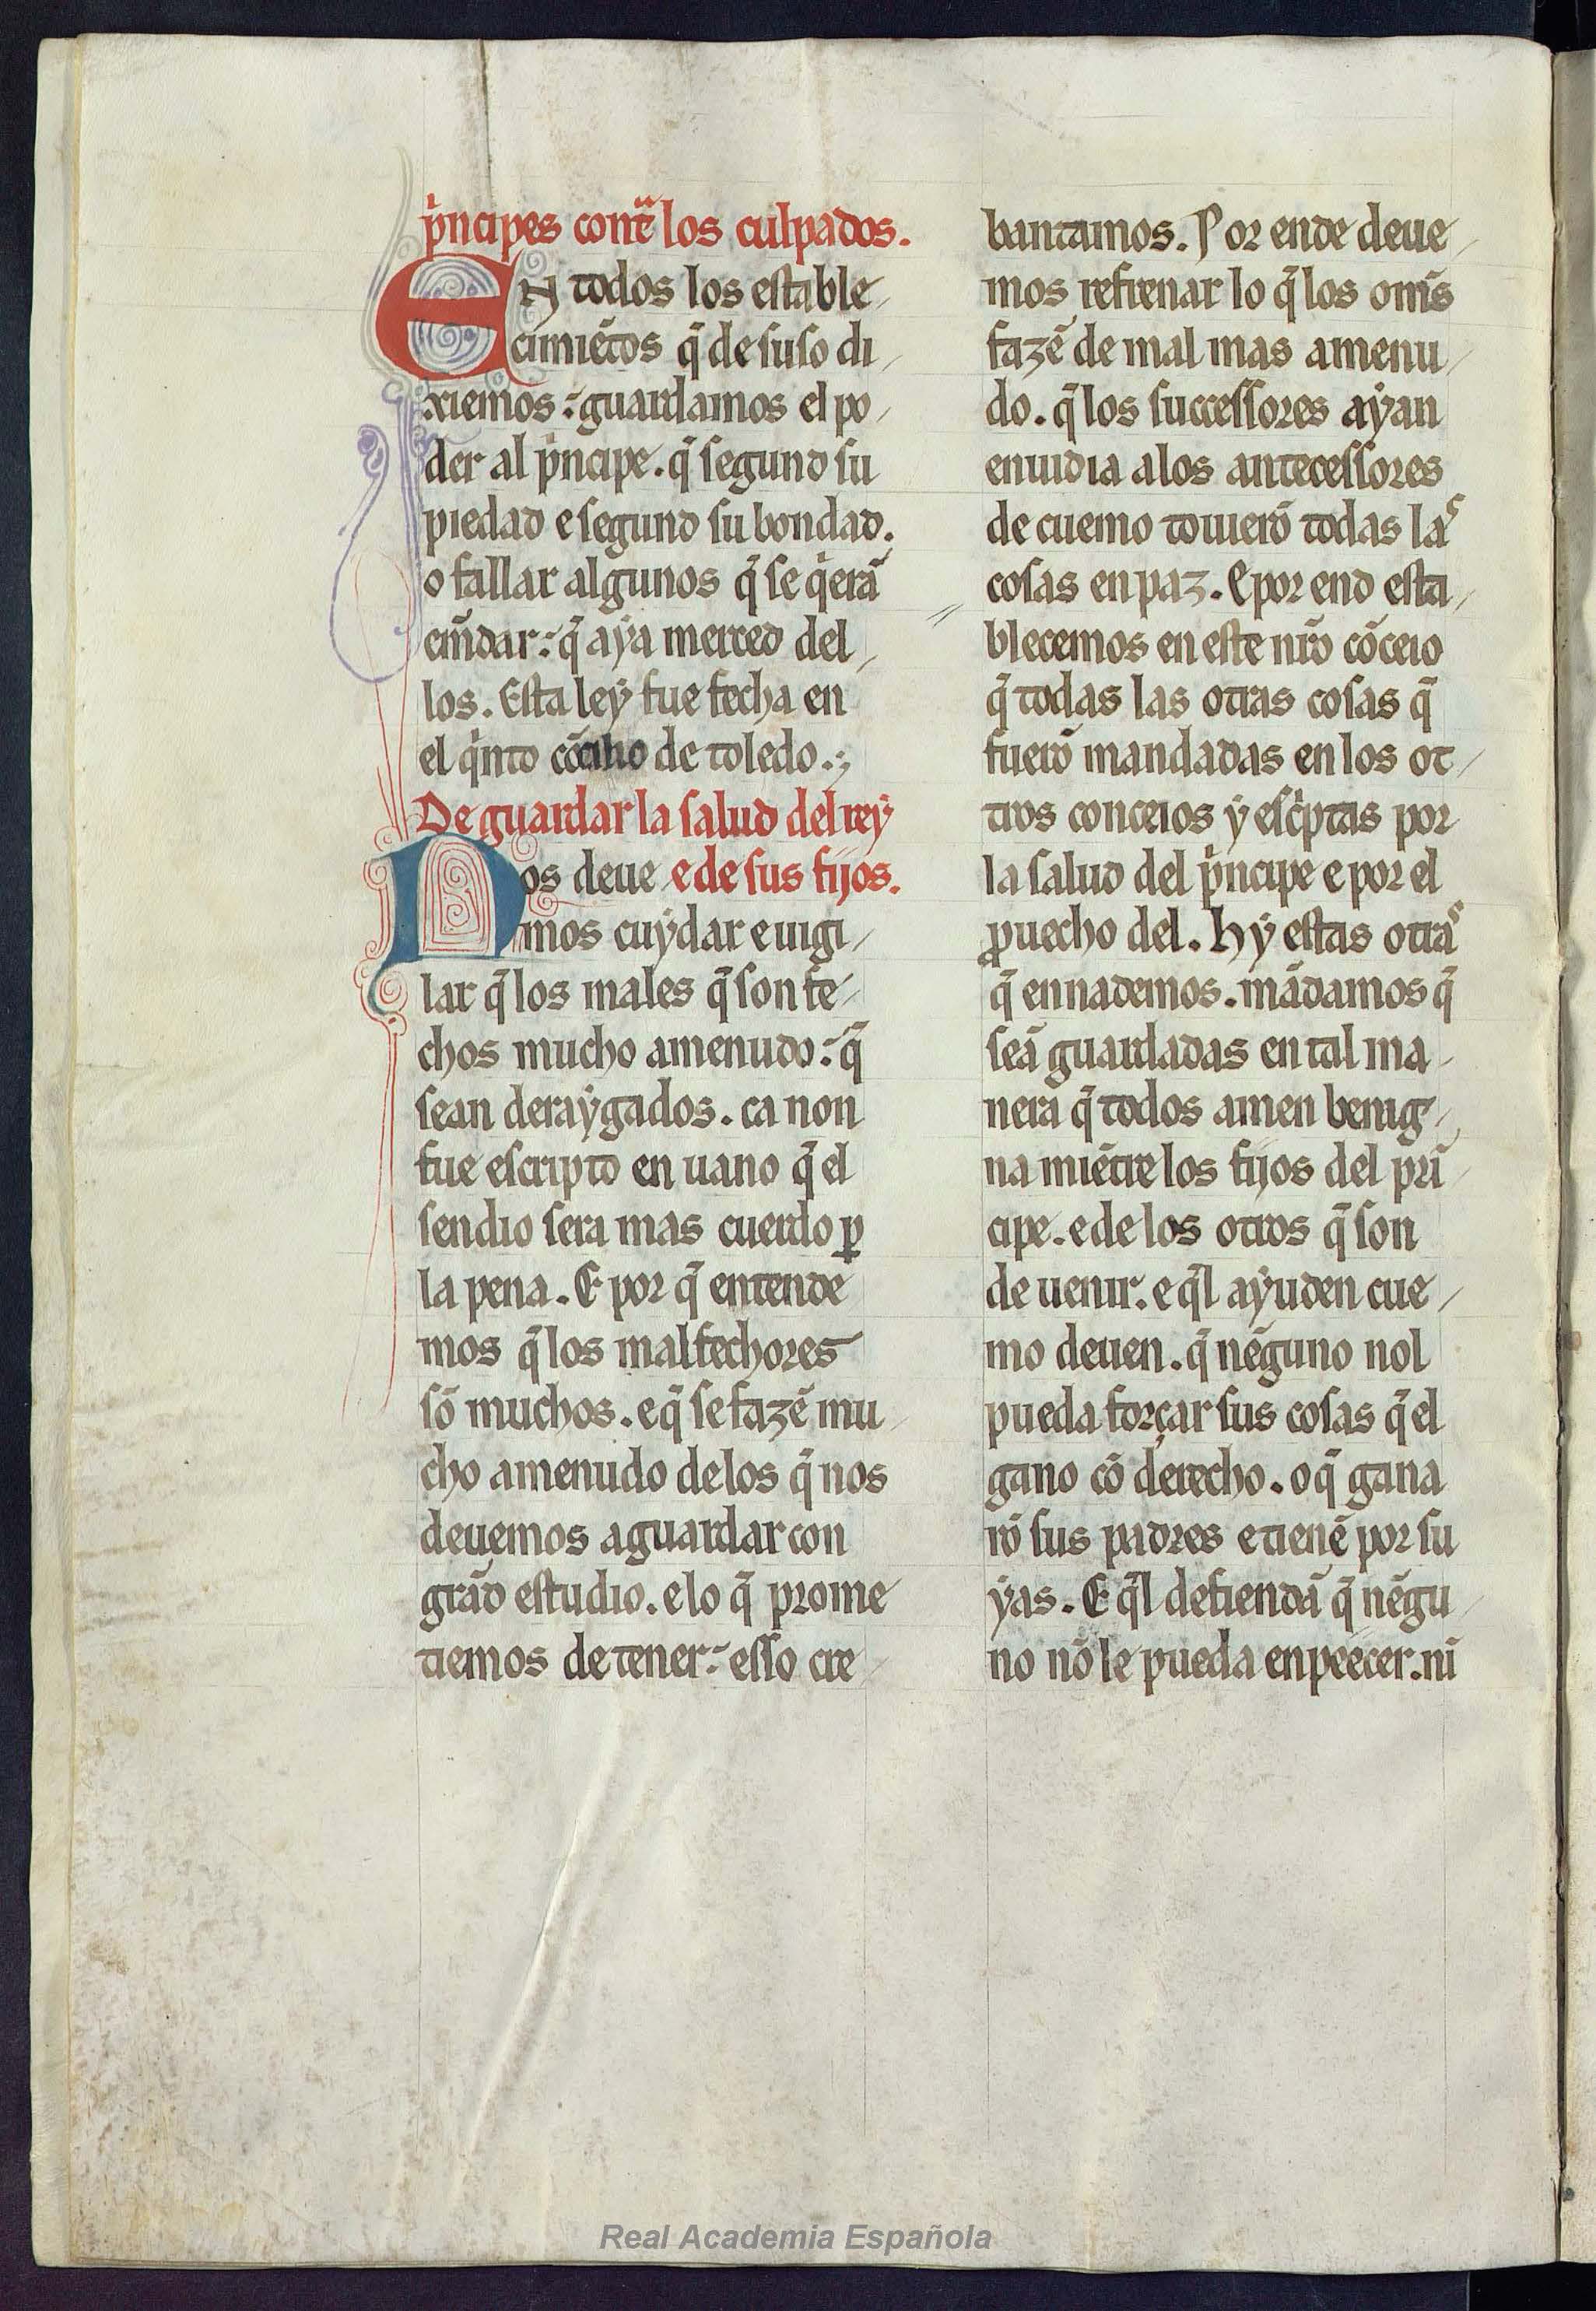 p̍ncipes cont̃ los culpados.
EN todos los estable
cimiẽtos q̃ de suso di
xiemos: guardamos el po
der al p̍ncipe. q̃ segund su
piedad e segund su bondad.
o fallar algunos q̃ se q̍erã
em̃dar: q̃ aẏa merced del
los. Esta leẏ fue fecha en
el q̍nto cõcilio de toledo.
De guardar la salud del reẏ
Nos deue e de sus fijos.
mos cuẏdar e uigi
lar q̃ los males q̃ son fe
chos mucho amenudo: q̃
sean deraẏgados. ca non
fue escripto en uano q̃ el
sendio sera mas cuerdo ꝑ
la pena. E por q̃ entende
mos q̃ los malfechores
sõ muchos. e q̃ se fazẽ mu
cho amenudo delos q̃ nos
deuemos aguardar con
grãd estudio. e lo q̃ prome
tiemos de tener: esso cre
bantamos. Por ende deue
mos refrenar lo q̃ los om̃s
fazẽ de mal mas amenu
do. q̃ los successores aẏan
enuidia alos antecessores
de cuemo touierõ todas las
cosas en paz. E por end esta
blecemos en este nr̃o cõceio
q̃ todas las otras cosas q̃
fuerõ mandadas en los ot
tros conceios y esc̍ptas por
la salud del p̍ncipe e por el
ꝓuecho del. Hẏ estas otras
q̃ ennademos. mãdamos q̃
seã guardadas en tal ma
nera q̃ todos amen benig
na miẽtre los fijos del prĩ
cipe. e de los otros q̃ son
de uenir. e q̃l aẏuden cue
mo deuen. q̃ nẽguno nol
pueda forçar sus cosas q̃ el
gano cõ derecho. o q̃ gana
rõ sus padres e tienẽ por su
ẏas. E q̃l defiendã q̃ nẽgu
no nõ le pueda enpeecer. nĩ
Real Academia Española